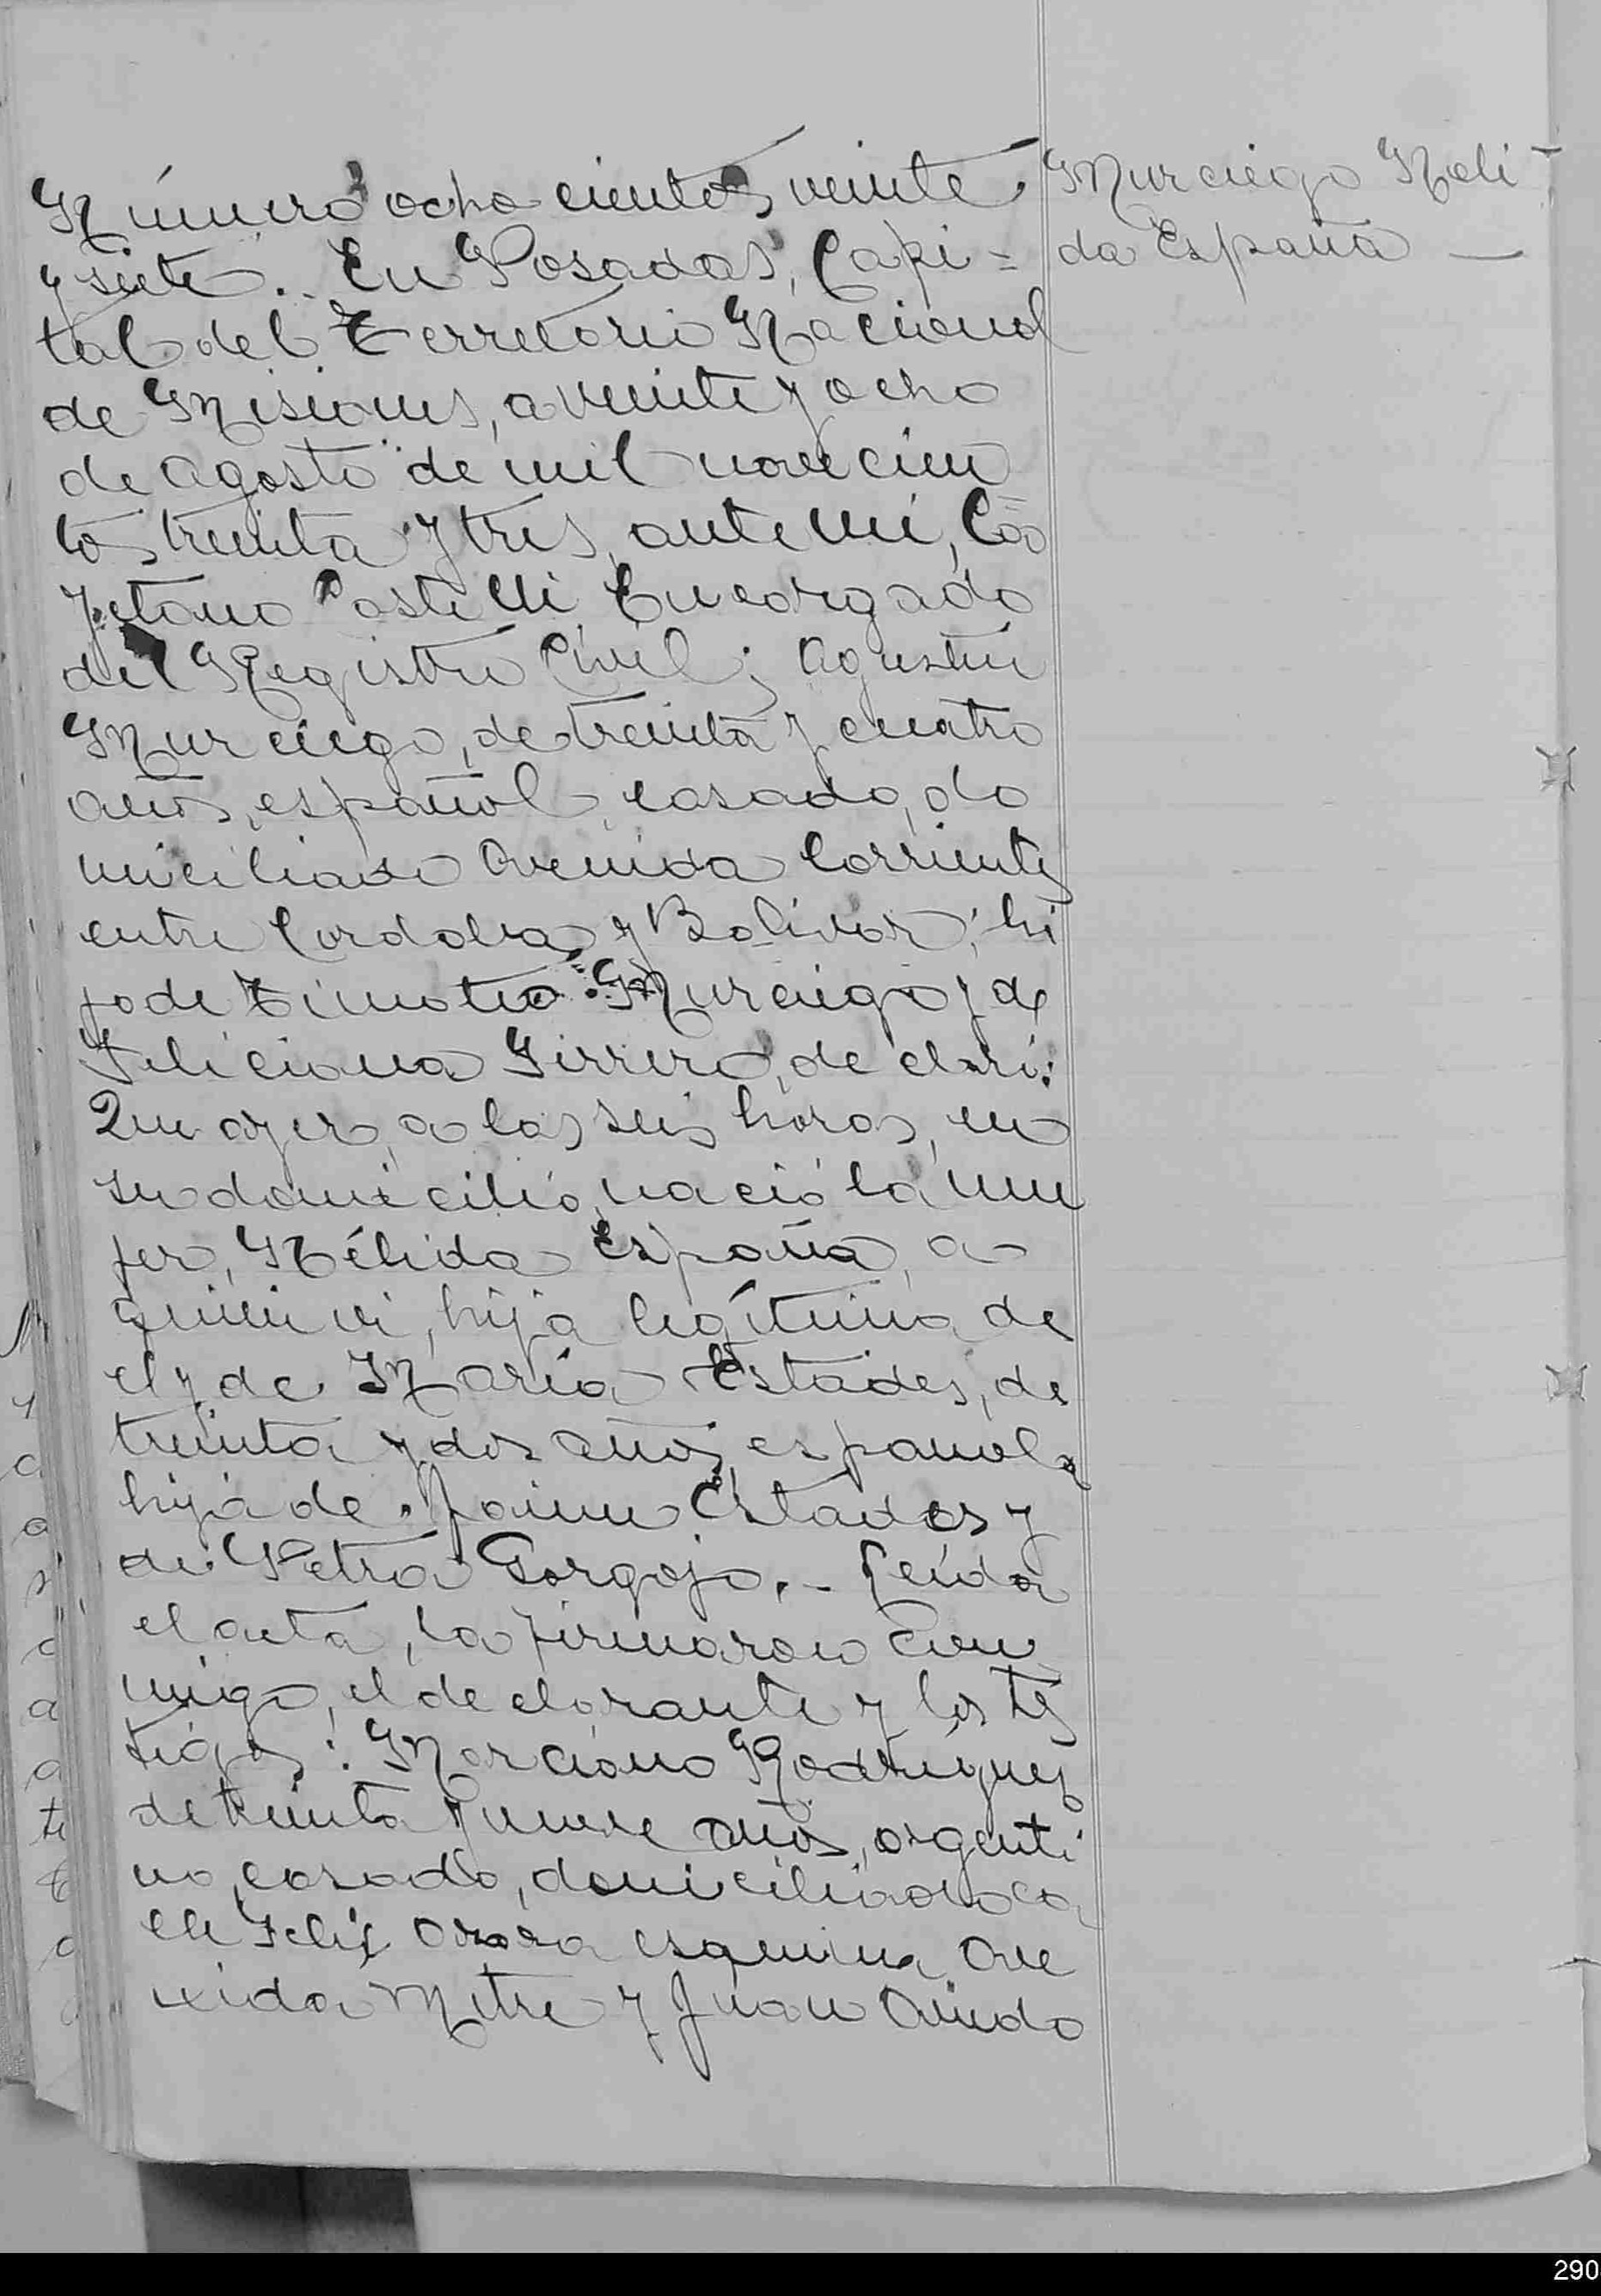 Número ochocientos veinte
y siete. En Posadas, Capi=
tal del Territorio Nacional
de Misiones, a veinte y ocho
de agosto de mil novecien
tos treinta y tres, ante mi, Ca
yetano Castelli Encargado
del Registro Civil; Agustin
Murciego, de treinta y cuatro
años, español, casado, do
miciliado Avenida Corrientes
entre Cordoba y Bolivar, hi
jo de Timoteo Murciego y de
Feliciana Ferrero, declaró:
Que ayer, a las seis horas, en
su domicilio, nació la mu
jer, Nélida España, a
quien vi, hija legítima de
el y de María Estades, de
treinta y dos años, española
hija de Jaime Estades y
de Petra Gorgojo.- Leída
el acta, la firmaron con
migo, el declarante y los tes
tigos: Marciano Rodriguez
de treinta y nueve años, argenti
no, casado, domiciliado ca
lle Felix Azara esquina Ave
nida Mitre y Juan Oviedo
Murciego Neli-
da España —
290